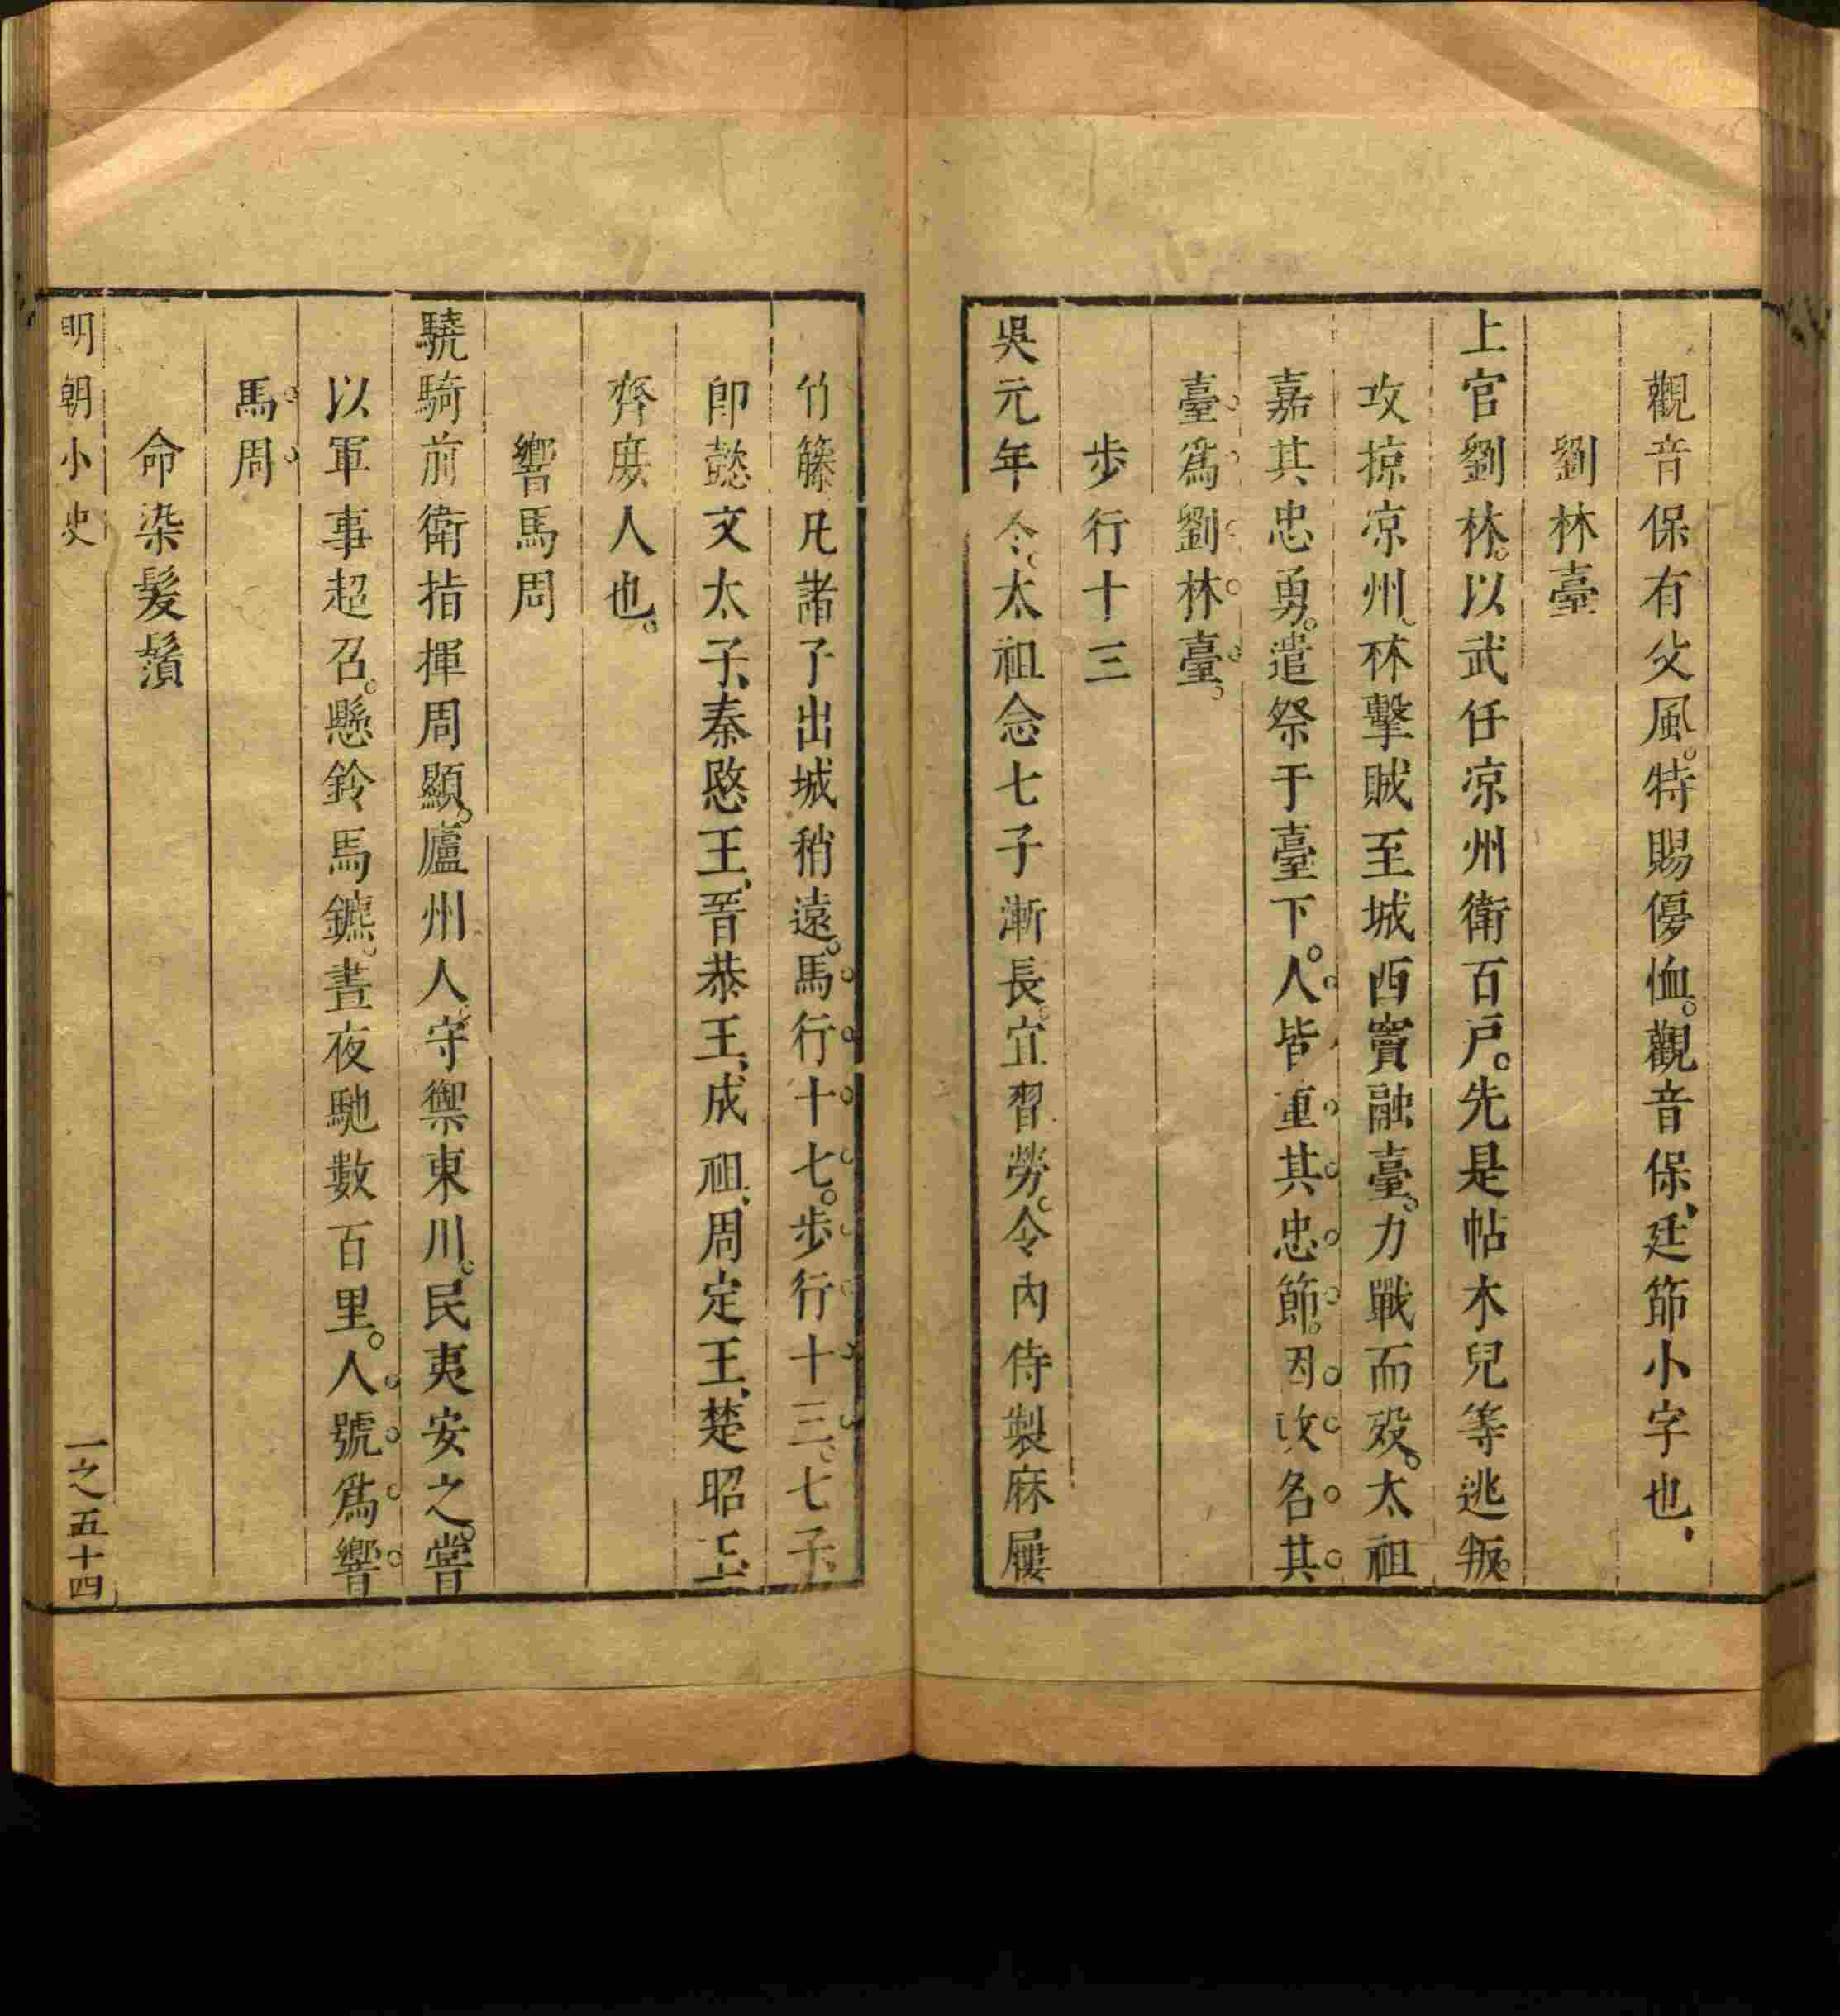 觀音保有父風。特賜優恤。觀音保、廷節小字也、
劉林臺
上官劉林。以武任凉州衛百戶。先是帖木兒等逃叛。
攻掠凉州、林擊賊至城西竇融臺。力戰而歿。太祖
嘉其忠勇。遣祭于臺下。人皆重其忠節。因改名其
臺爲劉林臺。
步行十三
吳元年令、太祖念七子漸長、宜習勞。令內侍製麻屨
竹籐凡諸子出城稍遠。馬行十七。步行十三。七子、
卽懿文太子、秦愍王、晉恭王、成祖、周定王、楚昭王、
齊庶人也。
響馬周
驍騎前衛指揮周顯。廬州人、守禦東川。民夷安之。嘗
以軍事超召。懸鈴馬鑣、晝夜馳數百里。人號爲響
馬周
命染髮鬚
明朝小史 一之五十四